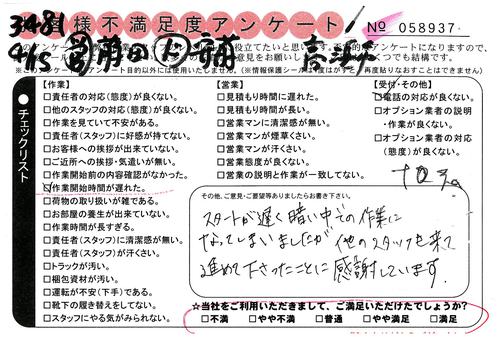 3481
様不満足度アンケート!
No 058937
4/15
チェックリスト
【作業】
□責任者の対応(態度)が良くない。
□他のスタッフの対応(態度)が良くない。
□作業を見ていて不安がある。
□責任者(スタッフ)に好感が持てない。
□お客様への挨拶が出来ていない。
□ご近所への挨拶・気遣いが無い。
□作業開始前の内容確認がなかった。
□作業開始時間が遅れた。
□荷物の取り扱いが雑である。
□お部屋の養生が出来ていない。
□作業時間が長すぎる。
□責任者(スタッフ)に清潔感が無い。
□責任者(スタッフ)が汗くさい。
□トラックが汚い。
□梱包資材が汚い。
□運転が不安(下手)である。
□靴下の履き替えをしてない。
□スタッフにやる気がみられない。
【営業】
□見積もり時間に遅れた。
□見積もり時間が長い。
□営業マンに清潔感が無い。
□営業マンが煙草くさい。
□営業マンが汗くさい。
□営業態度が良くない。
□営業の説明と作業が一致してない。
【受付・その他】
□電話の対応が良くない。
□オプション業者の説明
・作業が良くない。
□オプション業者の対応
(態度)が良くない。
その他、ご意見・ご要望等ありましたらお書き下さい。
スタートが遅く暗い中での作業に
なってしまいましたが 他のスタッフも来て
進めて下さったことに感謝しています。
☆当社をご利用いただきまして、ご満足いただけたでしょうか?
□不満 □やや不満 □普通 □やや満足 □満足